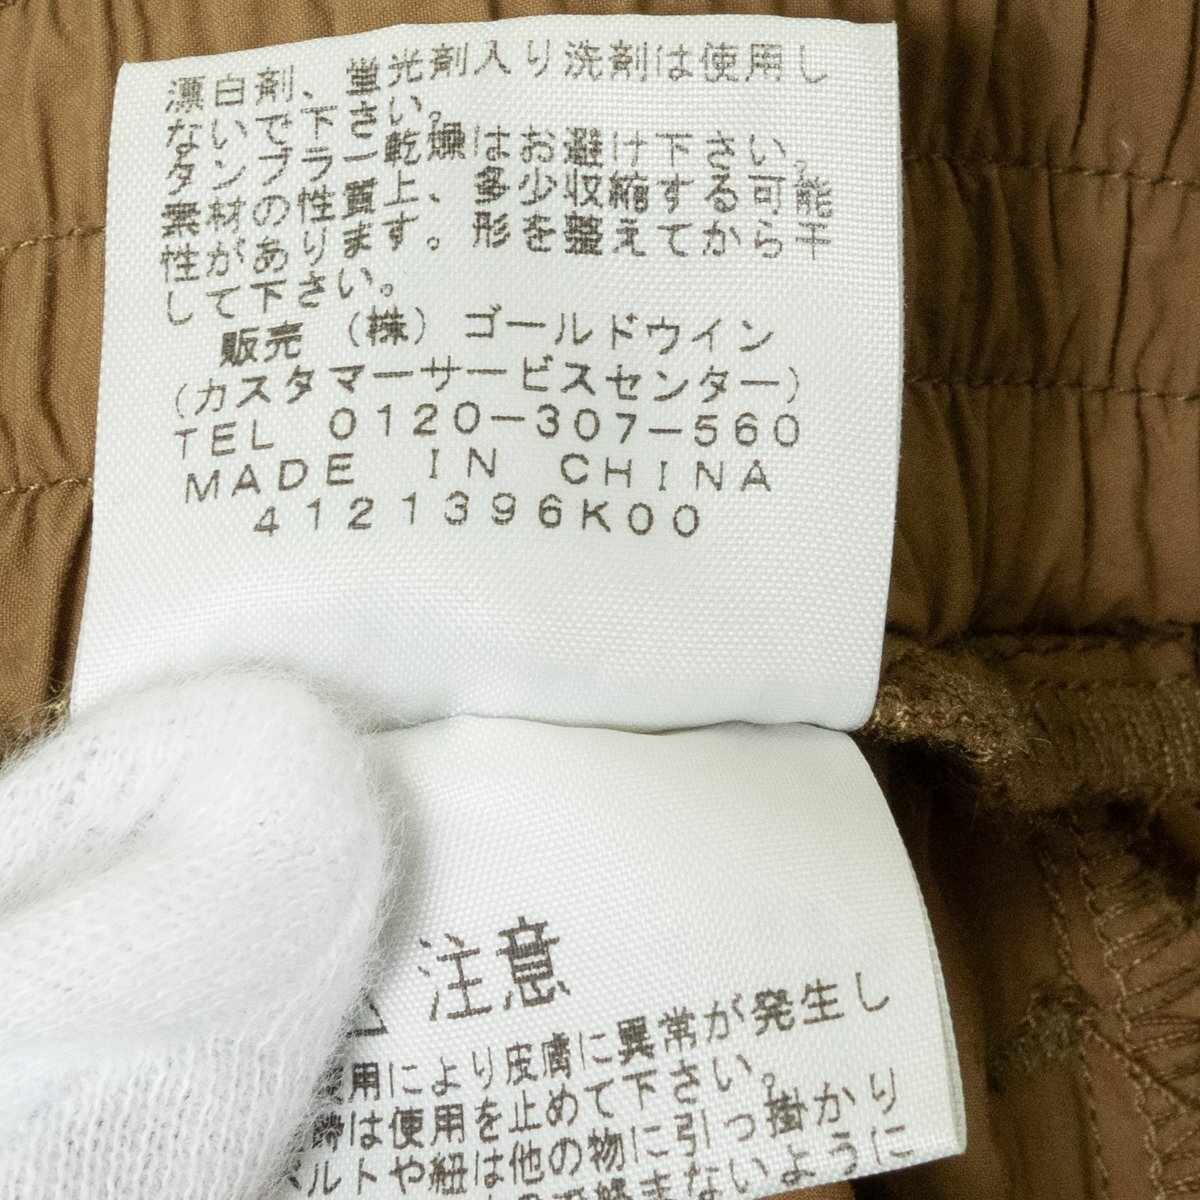 漂白剤、蛍光剤入り洗剤は使用し
ないで下さい。
タンブラー乾燥はお避け下さい。
素材の性質上、多少収縮する可能
性があります。形を整えてから干
して下さい。
販売 (株) ゴールドウイン
(カスタマーサービスセンター)
TEL 0120-307-560
MADE IN CHINA
4121396K00
注意
用により皮膚に異常が発生し
時は使用を止めて下さい。
ベルトや紐は他の物に引っ掛かり
まないように